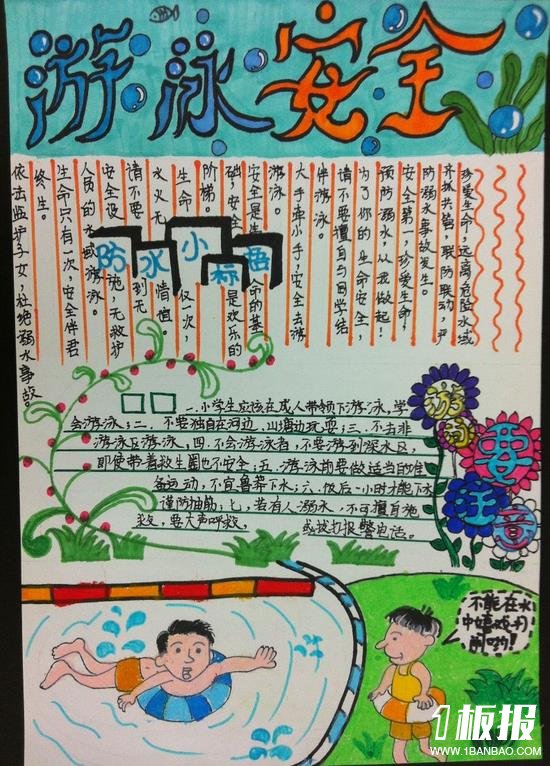 游泳安全
珍爱生命,远离危险水域
齐抓共管,联防联动,严
防溺水事故发生。
安全第一,珍爱生命!
预防溺水,从我做起!
为了你的生命安全,
请不要擅自与同学结
伴游泳。
大手牵小手,安全去游
游泳。
安全是生命的基
础,安全是欢乐的
阶梯。
生命仅一次,
水火无情
请不要到无
安全设施,无救护
人员的水域游泳。
生命只有一次,安全伴君
终生。
依法监护子女,杜绝溺水事故。
防水小标语
游泳要注意
一、小学生应该在成人带领下游泳,学
会游泳;二、不要独自在河边、山塘边玩耍;三、不去非
游泳区游泳,四、不会游泳者,不要游到深水区,
即使带着救生圈也不安全;五、游泳前要做适当的准
备运动,不宜鲁莽下水;六、饭后一小时才能下水
谨防抽筋;七、若有人溺水,不可擅自施
救,要大声呼救,或拨打报警电话。
不能在水
中嬉戏打
闹哟!
1板报
WWW.1BANBAO.COM